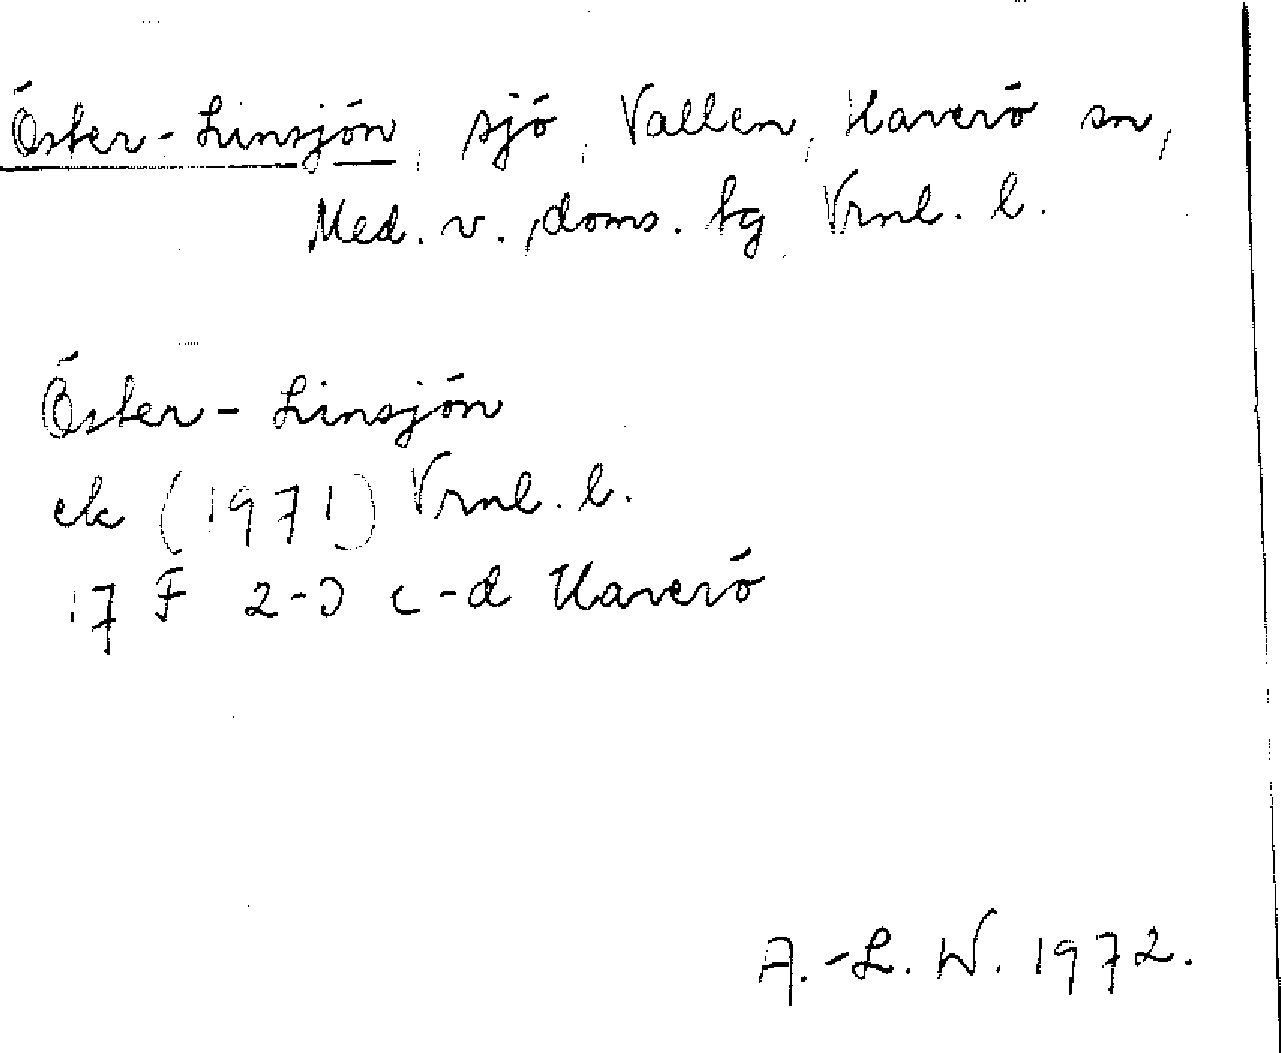 Öster-Linsjön, sjö, Vallen, Haverö sn,
Med. v. doms. tg Vrnl. l.
Öster-Linsjön
ek (1971) Vrnl. l.
17 F 2-3 c-d Haverö
A.-L. W. 1972.